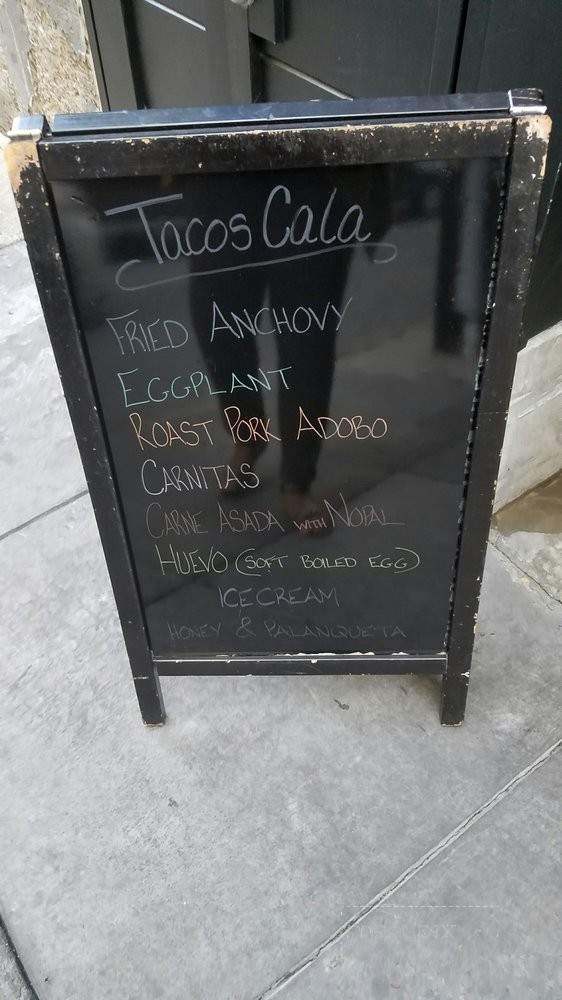 Tacos Cala
FRIED ANCHOVY
EGGPLANT
ROAST PORK ADOBO
CARNITAS
CARNE ASADA WITH NOPAL
HUEVO (SOFT BOILED EGG)
ICE CREAM
HONEY & PALANQUETA